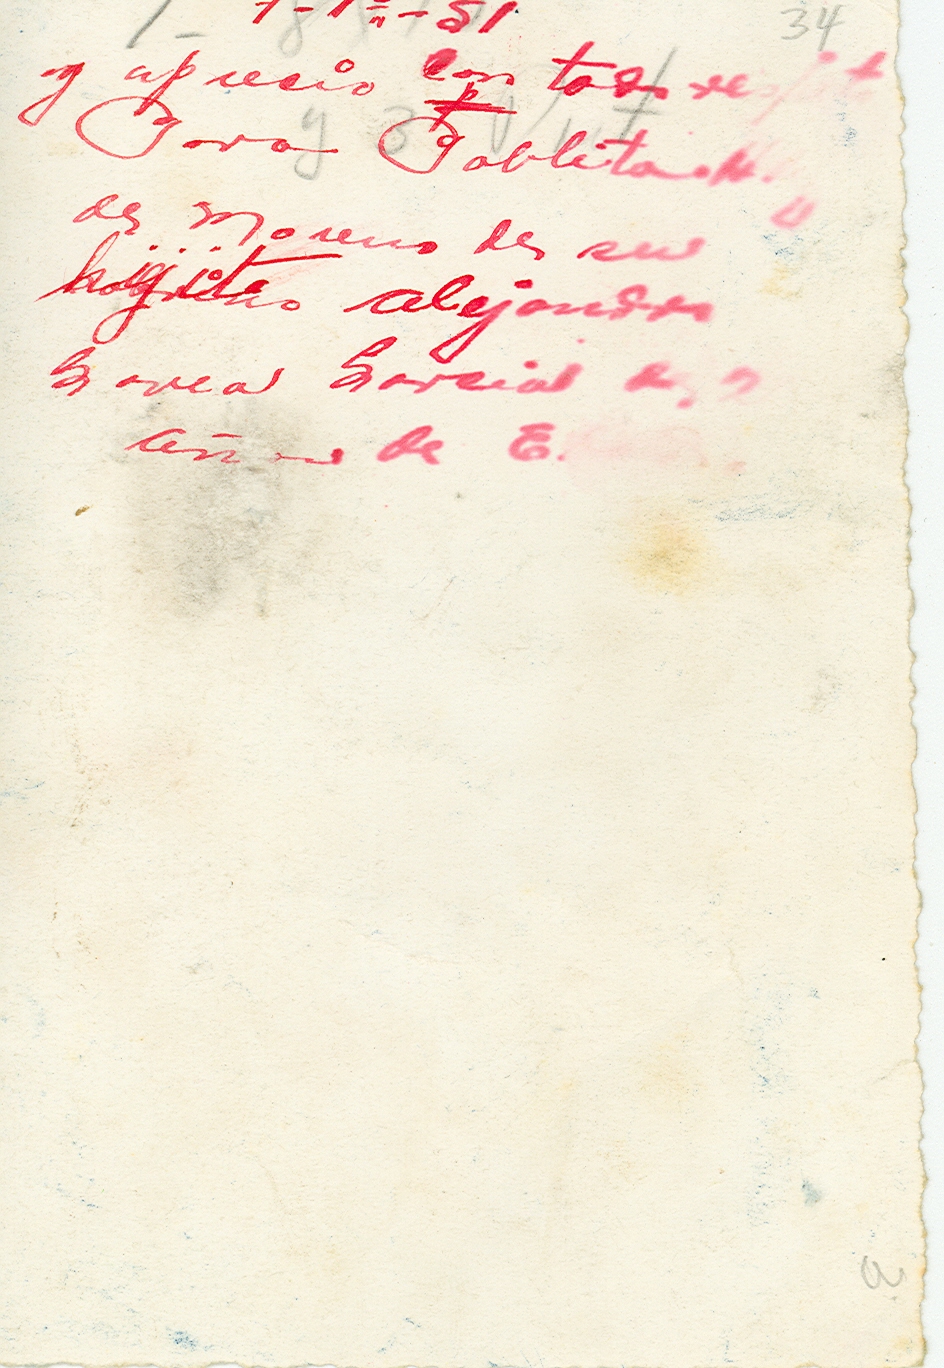 34
y aprecio con todo respeto
Para Pablita M.
de Moreno de su
hijito alejandro
Garcia Garcia de 7
años de E.
a